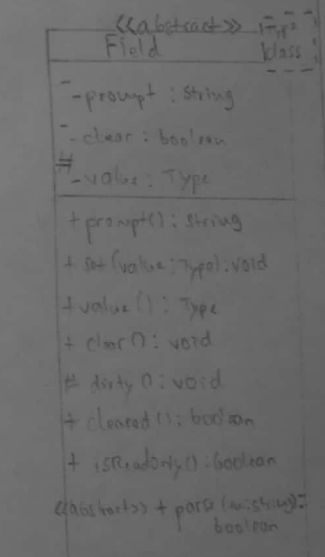 <<abstract>>
Field
Type
class
- prompt : String
- clear : boolean
# - value : Type
+ prompt() : String
+ set (value : Type) : void
+ value () : Type
+ clear () : void
# dirty () : void
+ cleared () : boolean
+ isReadOnly () : boolean
<<abstract>> + parse ( : String) :
boolean